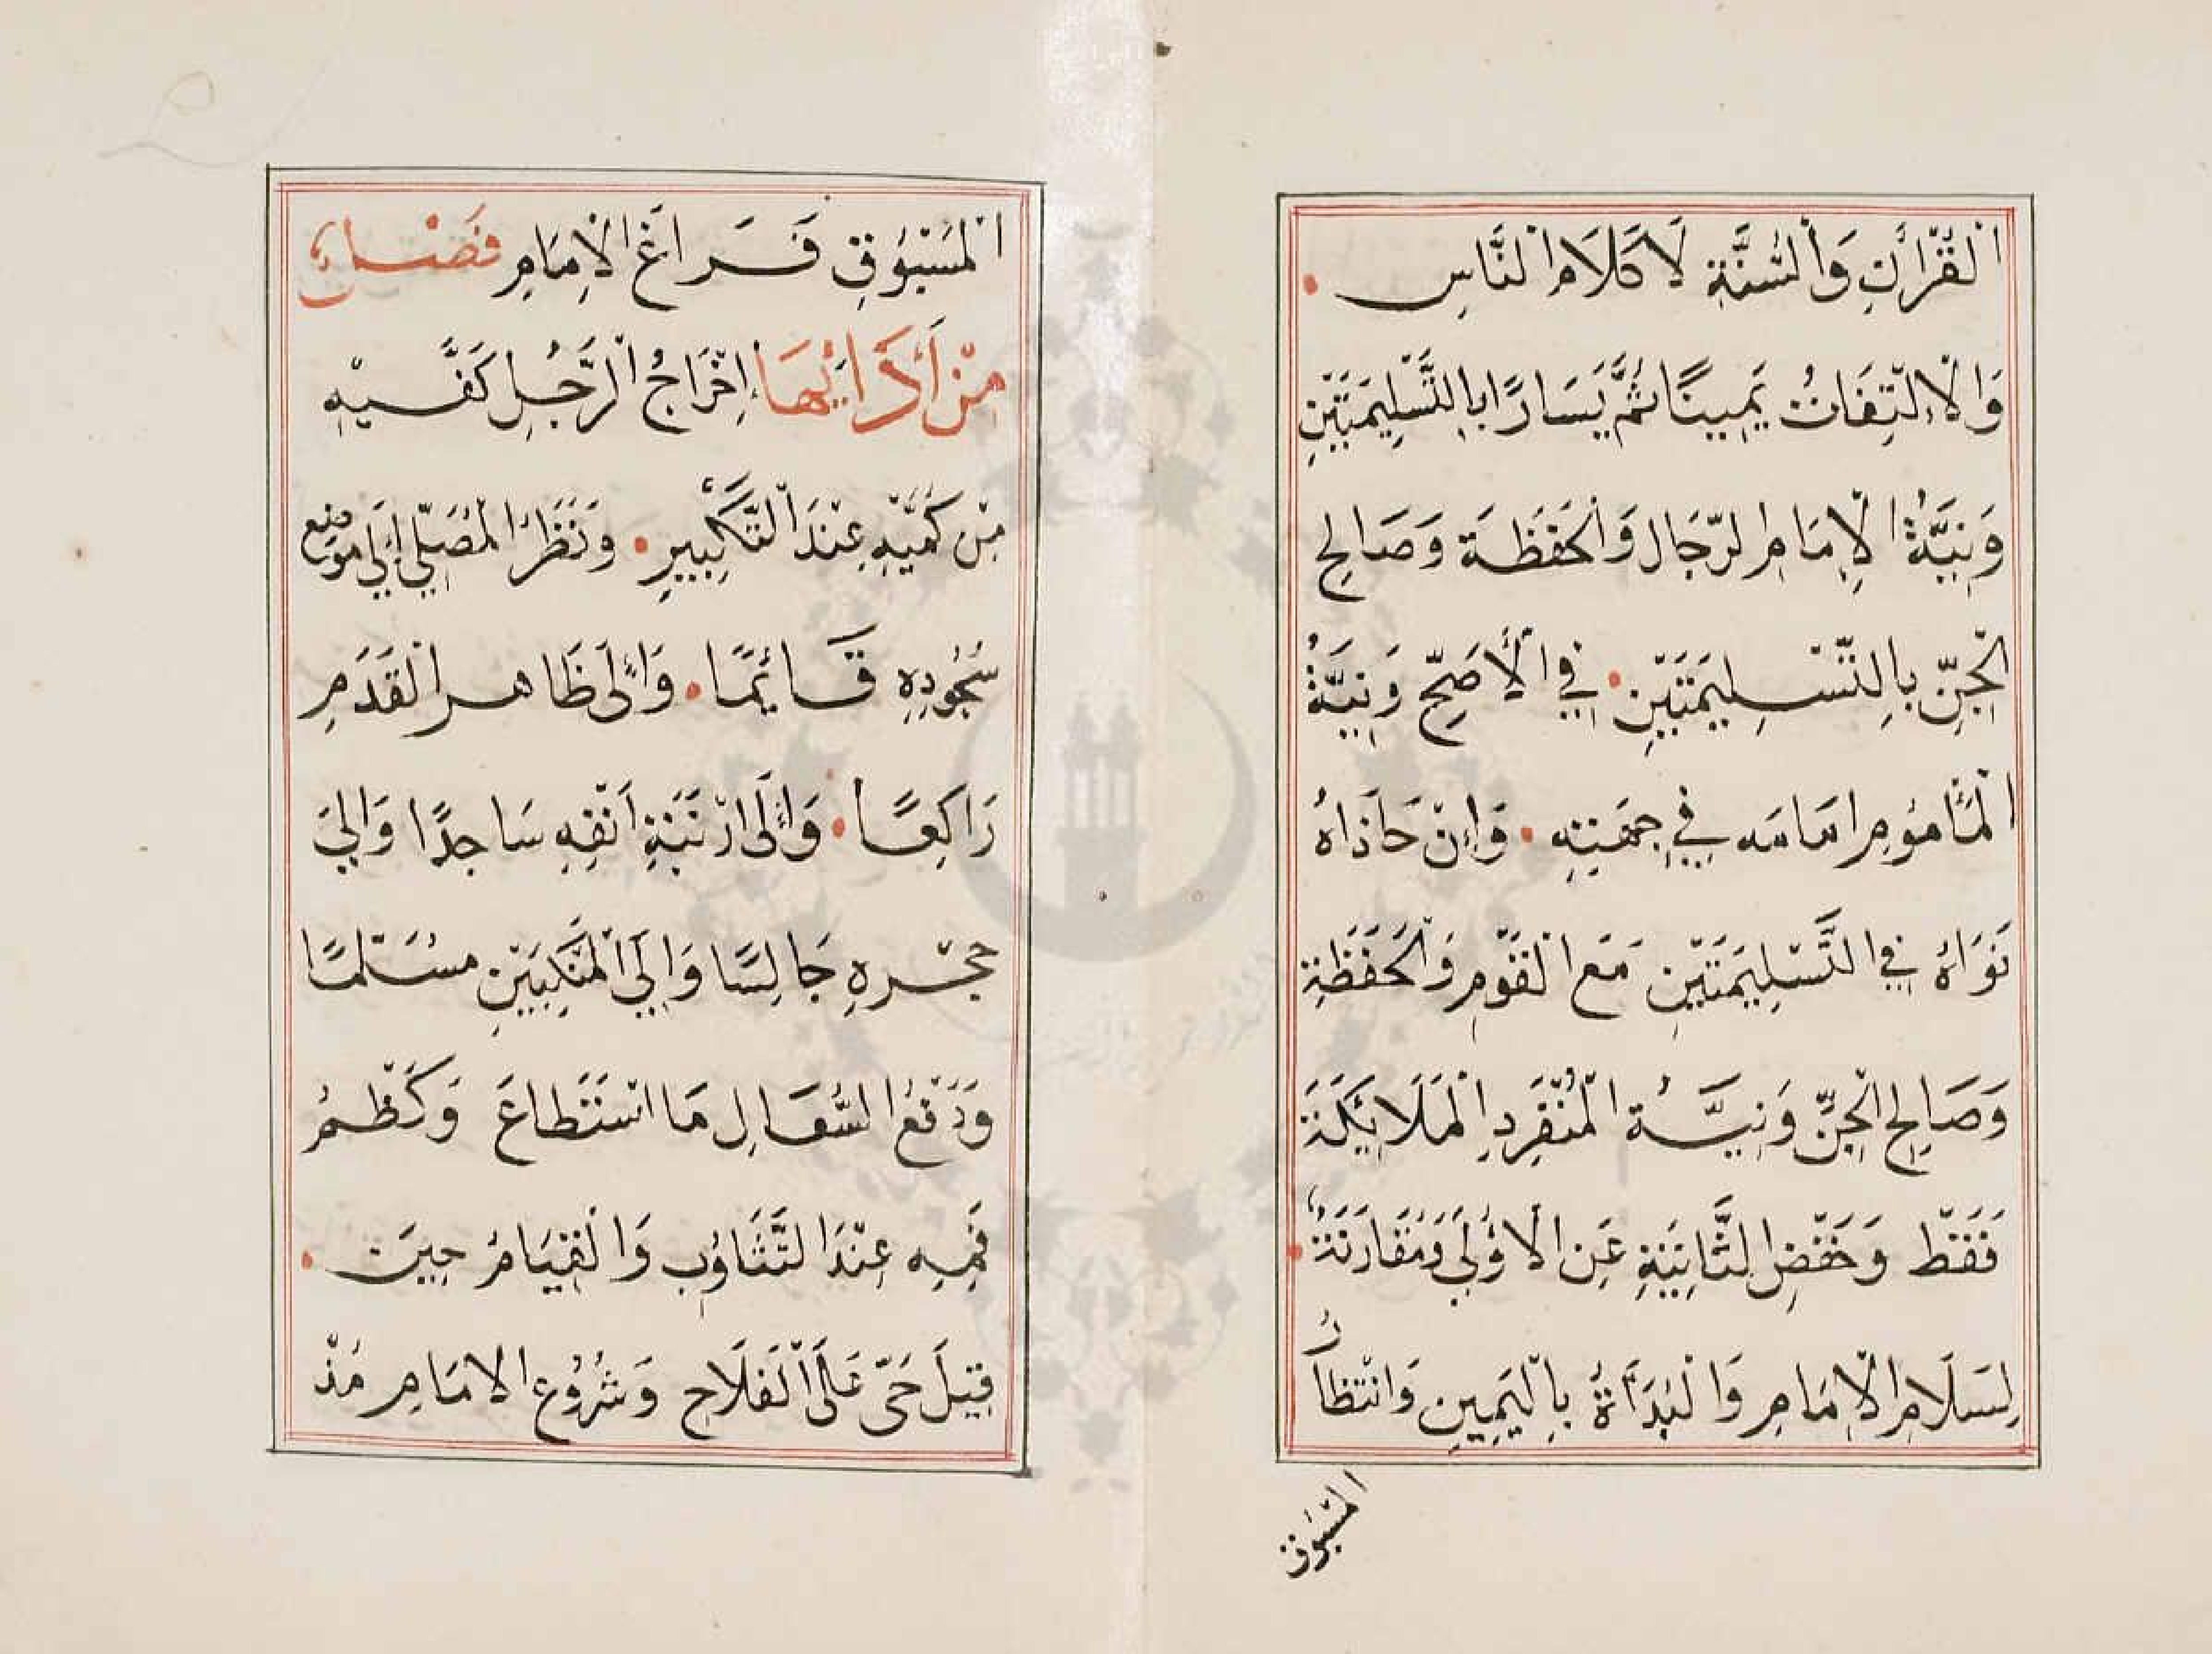 الْقُرْأٰنِ وَالْسُّنَّةِ لَا كَلَامِ الْنَّاسِ
وَالْاِلْتِفَاتُ يَمِينًا ثُمَّ يَسَارًا بِالتَّسْلِيمَتَيْنِ
وَنِيَّةُ الْاِمَامِ الرِّجَالَ وَالْحَفَظَةَ وَصَالِحَ
الْجِنِّ بِالتَّسْلِيمَتَيْنِ فِي الْأَصَحِّ وَنِيَّةُ
الْمَأْمُومِ اِمَامَه فِي جِهَتِهِ وَاِنْ حَاذَاهُ
نَوَاهُ فِي التَّسْلِيمَتَيْنِ مَعَ الْقَوْمِ وَالْحَفَظَةِ
وَصَالِحِ الْجِنِّ وَنِيَّةُ الْمُنْفَرِدِ الْمَلَائِكَةَ
فَقَطْ وَخَفْضِ الثَّانِيَةِ عَنِ الْاُوْلَى وَمُقَارَنَتُهُ
لِسَلَامِ الْاِمَامِ وَالْبُدَأَةُ بِالْيَمِينِ وَانْتِظَارُ
المسْبُوق
الْمَسْبُوقِ فَرَاغَ الْاِمَامِ فَصْلٌ
مِنْ أَدَابِهَا إِخْرَاجُ الْرَّجُلِ كَفَّيْهِ
مِنْ كُمَّيْهِ عِنْدَ الْتَّكْبِيرِ وَنَظَرُ الْمُصَلِّي إِلَى مَوْضِعِ
سُجُودِهِ قَائِمًا وَاِلَى ظَاهِرِ الْقَدَمِ
رَاكِعًا وَاِلَى اَرْنَبَةِ اَنْفِهِ سَاجِدًا وَاِلَى
حِجْرِهِ جَالِسًا وَاِلَى الْمَنْكِبَيْنِ مُسَلِّمًا
وَدَفْعُ السُّعَالِ مَا اسْتَطَاعَ وَكَظْمُ
فَمِهِ عِنْدَ التَّثَاؤُبِ وَالْقِيَامُ حِينَ
قِيلَ حَىَّ عَلَى الْفَلَاحِ وَشُرُوْعُ الْاِمَامِ مُذْ